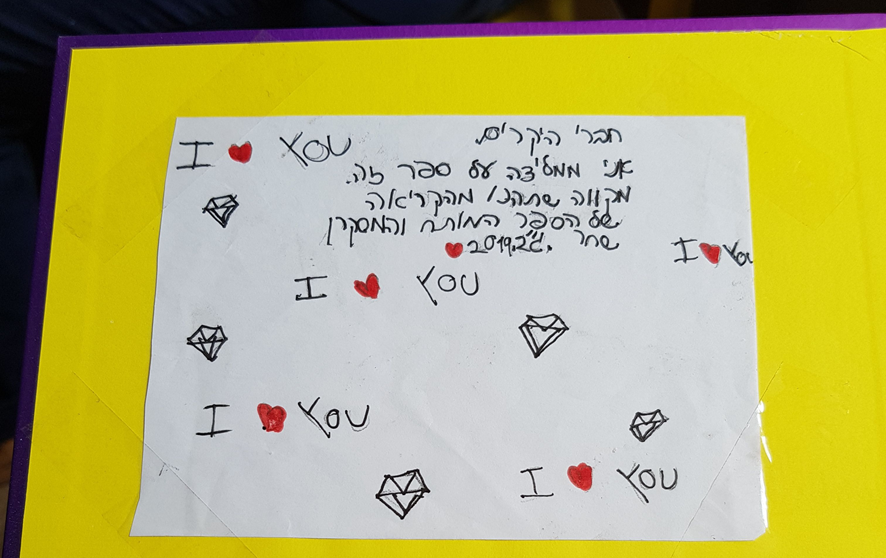 חברי היקרים.
I ❤ YOU
אני ממליצה על ספר זה.
מקווה שתהנו מהקריאה
של הספר המותח והמסקרן
שחר ג'2, 2019.❤
I ❤ You
I ❤ YOU
I ❤ YOU
I ❤ YOU